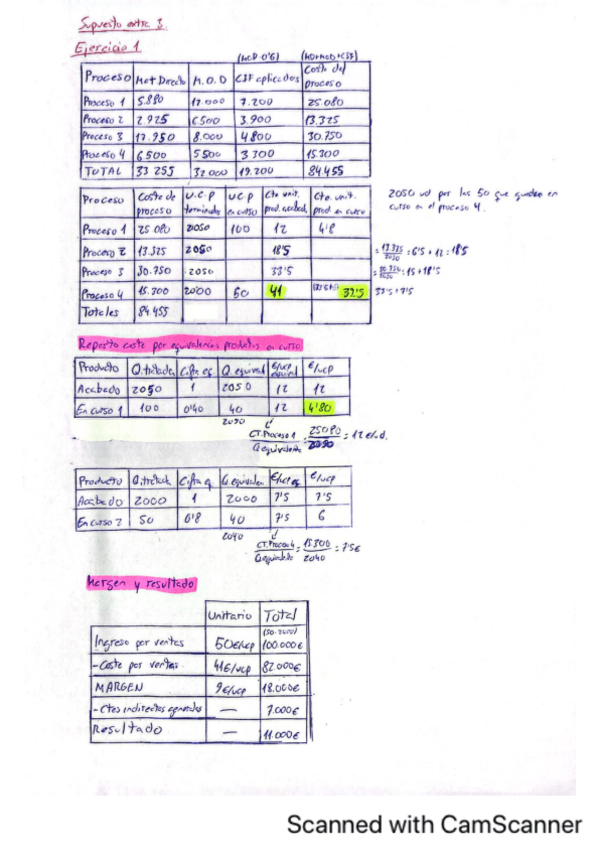 Supuesto extra 3.
Ejercicio 1
(MOD·0'6) (MD+MOD+CIF)
Proceso Mat Directo M.O.D CIF aplicados Coste del proceso
Proceso 1 5.880 12.000 7.200 25.080
Proceso 2 2.925 6500 3.900 13.325
Proceso 3 17.950 8.000 4800 30.750
Proceso 4 6500 5500 3300 15.300
TOTAL 33255 32000 19.200 84455
Proceso Coste de proceso U.C.P terminados U.C.P en curso Cte unit. prod. acabad. Cte. unit. prod en curso
2050 ud por las 50 que quedan en curso en el proceso 4.
Proceso 1 25 080 2050 100 12 4'8
Proceso 2 13.325 2050 18'5 = 13.325/2050 = 6'5 + 12 = 18'5
Proceso 3 30.750 2050 33'5 = 30.750/2050 = 15 + 18'5
Proceso 4 15.300 2000 50 41 39'5 33'5 + 7'5
Totales 84455
Reparto coste por equivalencias productos en curso
Producto Q.tratada Cifra eq Q equival €/ucp equival €/ucp
Acabado 2050 1 2050 12 12
En curso 1 100 0'40 40 12 4'80
2090
CT.Proceso 1/Q equivalente = 25080/2090 = 12 €/ud.
Producto Q.tratada Cifra eq Q equivalen €/uct eq €/ucp
Acabado 2000 1 2000 7'5 7'5
En curso 2 50 0'8 40 7'5 6
2040
CT.Proceso 4/Q equivalente = 15.300/2040 = 7'5€
Margen y resultado
Unitario Total
(50·2000)
Ingreso por ventas 50€/ucp 100.000€
-Coste por ventas 41€/ucp 82.000€
MARGEN 9€/ucp 18.000€
-Ctes indirectos generales — 7.000€
Resultado — 11.000€
Scanned with CamScanner